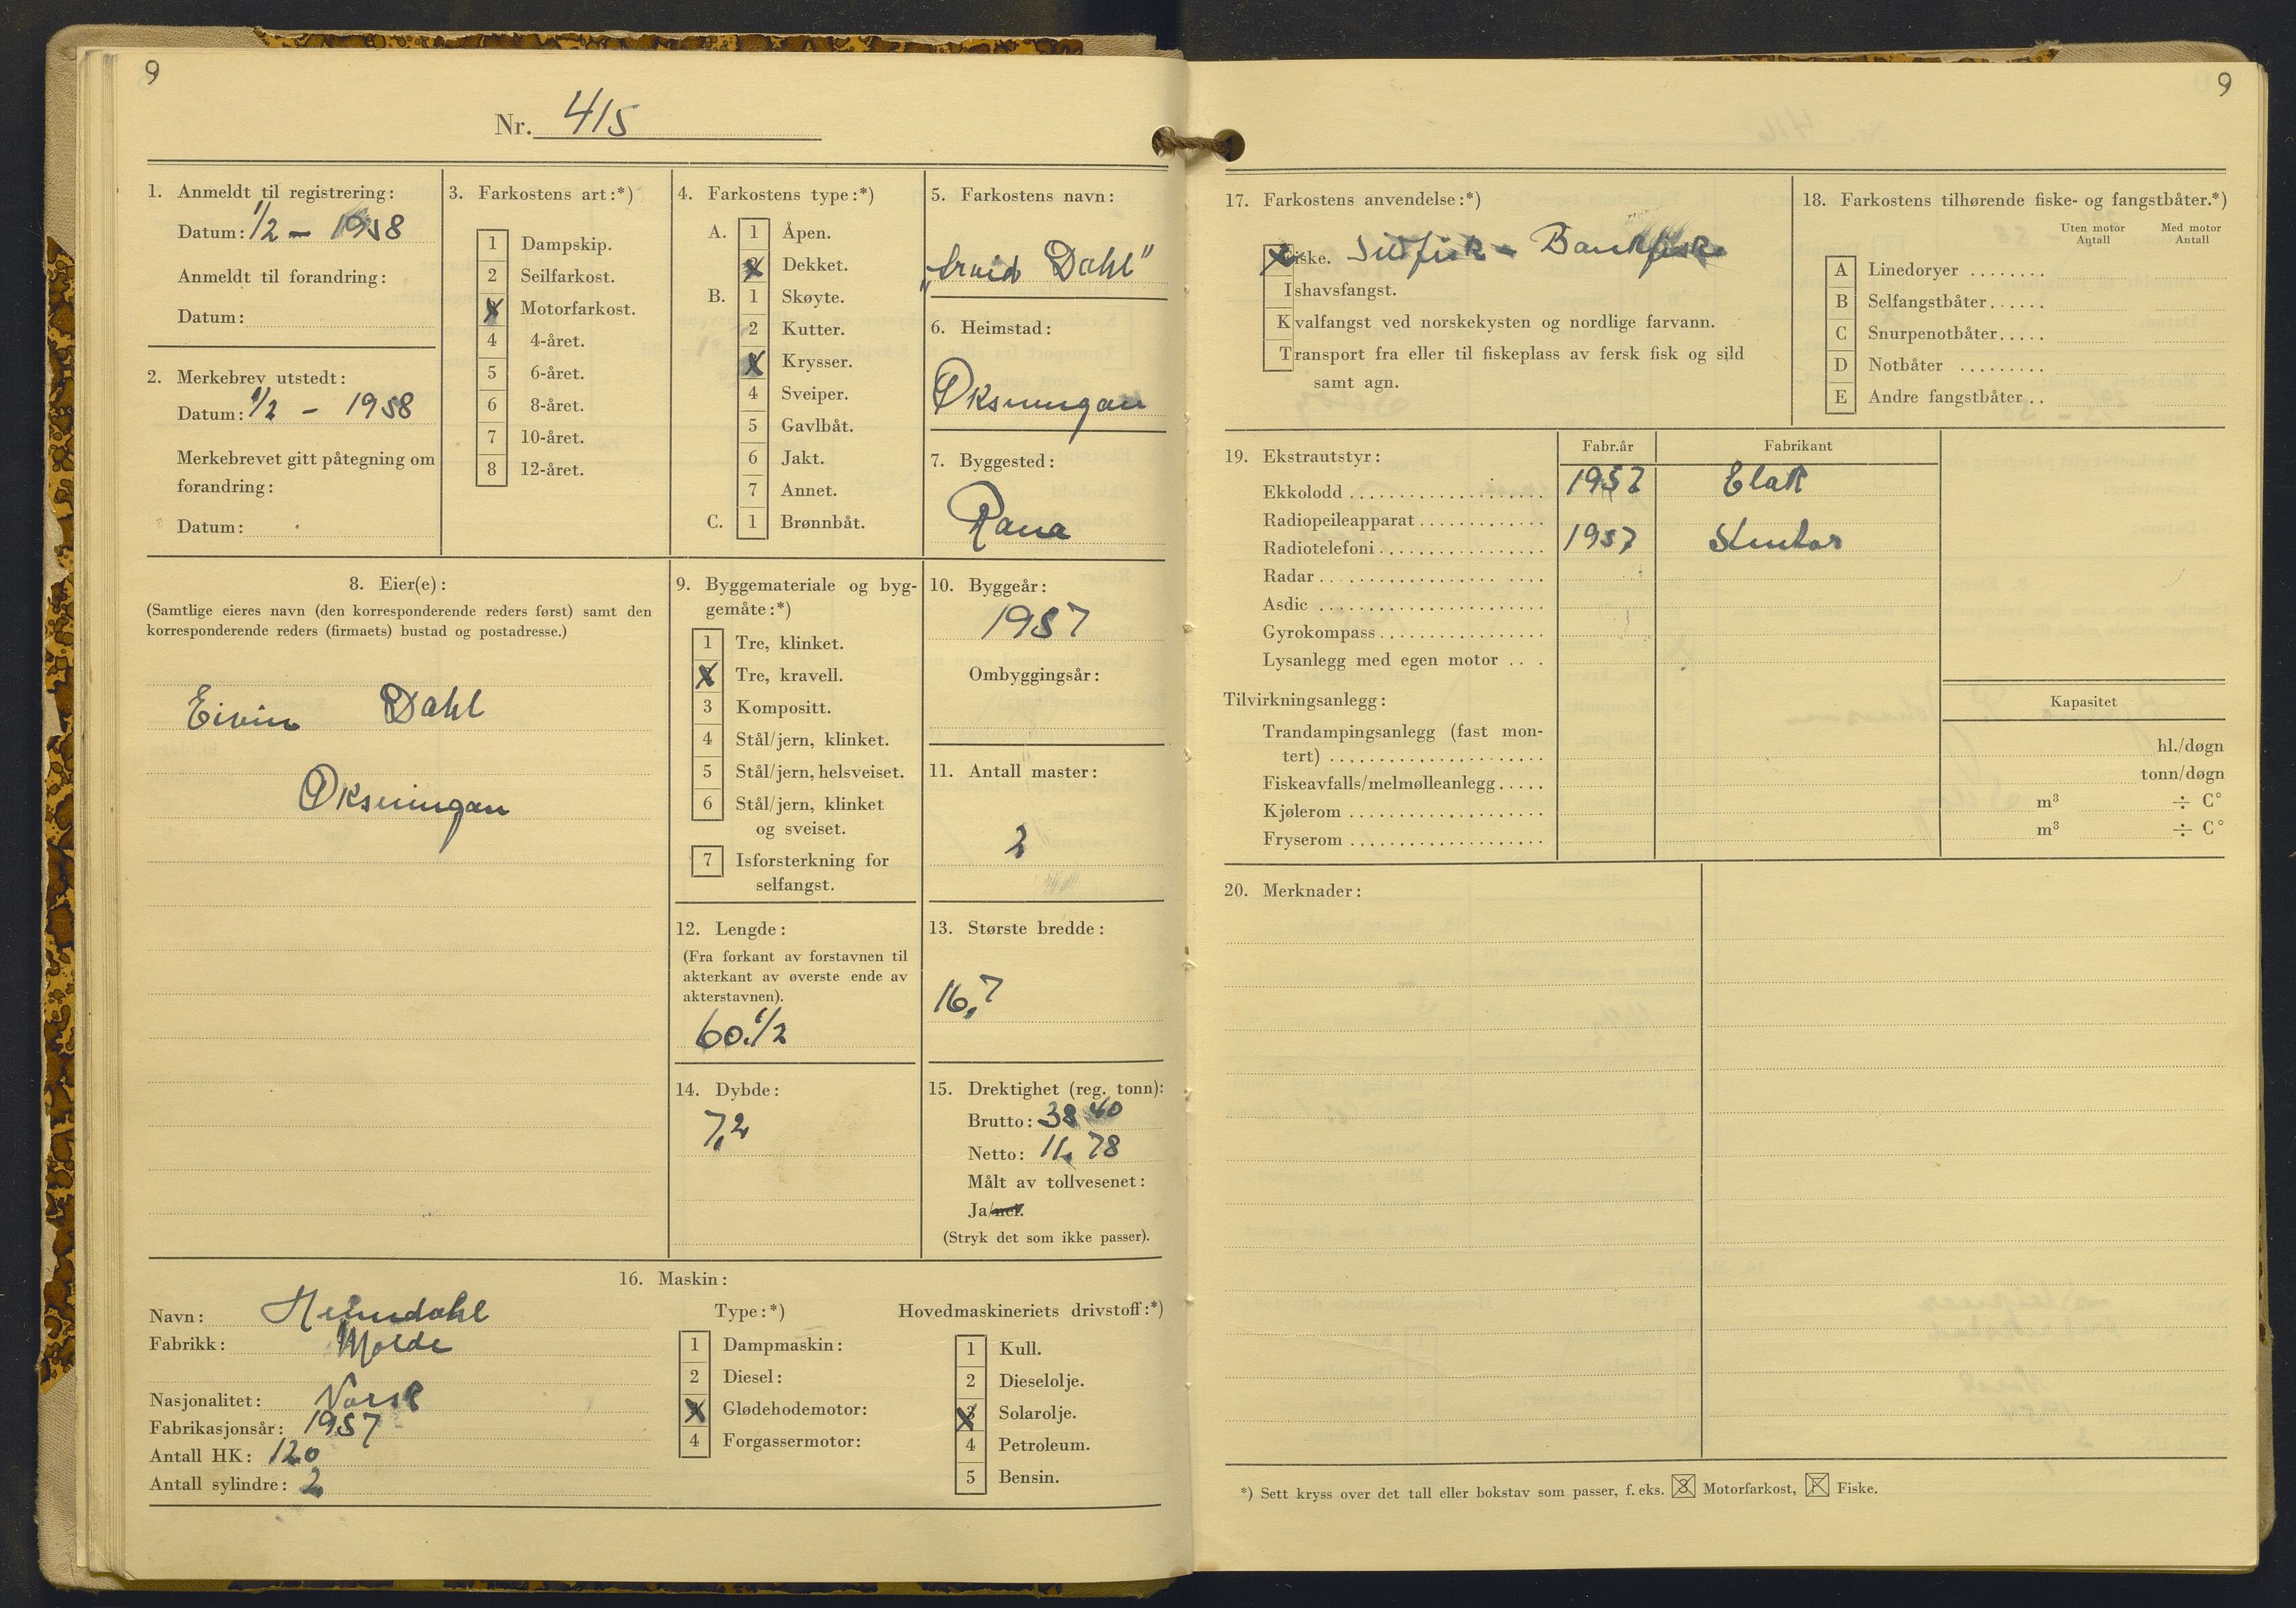 9
Nr. 415
1. Anmeldt til registrering:
Datum: 1/2 - 1958
Anmeldt til forandring:
Datum:
2. Merkebrev utstedt:
Datum: 1/2 - 1958
Merkebrevet gitt påtegning om
forandring:
Datum:
3. Farkostens art:*)
1 Dampskip.
2 Seilfarkost.
X Motorfarkost.
4 4-året.
5 6-året.
6 8-året.
7 10-året.
8 12-året.
4. Farkostens type:*)
A. 1 Åpen.
X Dekket.
B. 1 Skøyte.
2 Kutter.
X Krysser.
4 Sveiper.
5 Gavlbåt.
6 Jakt.
7 Annet.
C. 1 Brønnbåt.
5. Farkostens navn:
Dahl"
6. Heimstad:
Øksningan
7. Byggested:
Rana
8. Eier(e):
(Samtlige eieres navn (den korresponderende reders først) samt den
korresponderende reders (firmaets) bustad og postadresse.)
Eivin Dahl
Øksningan
9. Byggemateriale og byg-
gemåte:*)
1 Tre, klinket.
X Tre, kravell.
3 Kompositt.
4 Stål/jern, klinket.
5 Stål/jern, helsveiset.
6 Stål/jern, klinket
og sveiset.
7 Isforsterkning for
selfangst.
10. Byggeår:
1957
Ombyggingsår:
11. Antall master:
2
12. Lengde:
(Fra forkant av forstavnen til
akterkant av øverste ende av
akterstavnen).
60.1/2
13. Største bredde:
16,7
14. Dybde:
7,2
15. Drektighet (reg. tonn):
Brutto: 38 40
Netto: 11,78
Målt av tollvesenet:
Ja/nei.
(Stryk det som ikke passer).
16. Maskin:
Navn: Heimdahl
Fabrikk: Molde
Nasjonalitet: Norsk
Fabrikasjonsår: 1957
Antall HK: 120
Antall sylindre: 2
Type:*)
1 Dampmaskin:
2 Diesel:
X Glødehodemotor:
4 Forgassermotor:
Hovedmaskineriets drivstoff:*)
1 Kull.
2 Dieselolje.
3 Solarolje.
4 Petroleum.
5 Bensin.
9
17. Farkostens anvendelse:*)
Fiske. Sildfisk - Bankfiske
Ishavsfangst.
Kvalfangst ved norskekysten og nordlige farvann.
Transport fra eller til fiskeplass av fersk fisk og sild
samt agn.
18. Farkostens tilhørende fiske- og fangstbåter.*)
Uten motor Med motor
Antall Antall
A Linedoryer ........
B Selfangstbåter......
C Snurpenotbåter.....
D Notbåter .........
E Andre fangstbåter ..
19. Ekstrautstyr: Fabr.år Fabrikant
Ekkolodd 1957 Elak
Radiopeileapparat
Radiotelefoni 1957
Radar
Asdic
Gyrokompass
Lysanlegg med egen motor
Tilvirkningsanlegg: Kapasitet
Trandampingsanlegg (fast mon-
tert) hl./døgn
Fiskeavfalls/melmølleanlegg..... tonn/døgn
Kjølerom m³ ÷ C°
Fryserom m³ ÷ C°
20. Merknader:
*) Sett kryss over det tall eller bokstav som passer, f. eks. 3 Motorfarkost, F Fiske.